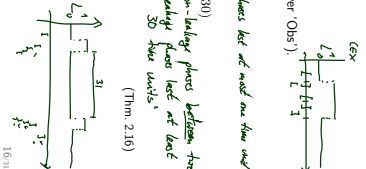 CEX
L
1
0
er 'Obs').
phases last at most one time unit
30)
n-leakage phases between two
leakage phases last at least
30 time units"
(Thm. 2.16)
L
1
0
31
16/31